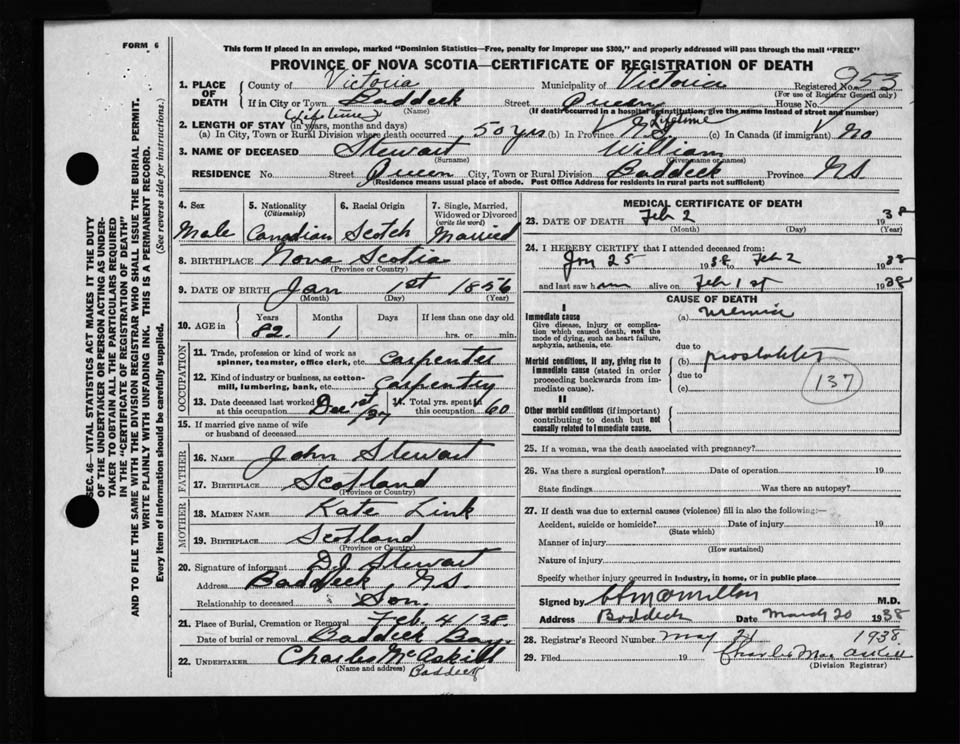 FORM 6
This form if placed in an envelope, marked "Dominion Statistics—Free, penalty for improper use $300," and properly addressed will pass through the mail "FREE"
PROVINCE OF NOVA SCOTIA—CERTIFICATE OF REGISTRATION OF DEATH
1. PLACE OF DEATH County of Victoria Municipality of Victoria Registered No. 953
(For use of Registrar General only)
If in City or Town Baddeck Street Queen House No.
(Name) (If death occurred in a hospital or institution, give the name instead of street and number)
2. LENGTH OF STAY (in years, months and days) Lifetime Lifetime
(a) In City, Town or Rural Division where death occurred 50 yrs (b) In Province N.S. (c) In Canada (if immigrant) No
3. NAME OF DECEASED Stewart William
(Surname) (Given name or names)
RESIDENCE No. Street Queen City, Town or Rural Division Baddeck Province N.S.
(Residence means usual place of abode. Post Office Address for residents in rural parts not sufficient)
4. Sex 5. Nationality (Citizenship) 6. Racial Origin 7. Single, Married, Widowed or Divorced (write the word)
Male Canadian Scotch Married
8. BIRTHPLACE Nova Scotia
(Province or Country)
9. DATE OF BIRTH Jan 1st 1856
(Month) (Day) (Year)
10. AGE in Years Months Days If less than one day old
82 1 hrs. or min.
OCCUPATION
11. Trade, profession or kind of work as spinner, teamster, office clerk, etc. Carpenter
12. Kind of industry or business, as cotton-mill, lumbering, bank, etc. Carpentry
13. Date deceased last worked at this occupation Dec 1st /37 14. Total yrs. spent in this occupation 60
15. If married give name of wife or husband of deceased
FATHER
16. NAME John Stewart
17. BIRTHPLACE Scotland
(Province or Country)
MOTHER
18. MAIDEN NAME Kate Link
19. BIRTHPLACE Scotland
(Province or Country)
20. Signature of informant D.J. Stewart
Address Baddeck, N.S.
Relationship to deceased Son.
21. Place of Burial, Cremation or Removal Feb. 4/38.
Date of burial or removal Baddeck Bay
22. UNDERTAKER Charles McAskill
(Name and address) Baddeck
MEDICAL CERTIFICATE OF DEATH
23. DATE OF DEATH Feb 2 1938
(Month) (Day) (Year)
24. I HEREBY CERTIFY that I attended deceased from:
Jan 25 1938 to Feb 2 1938
and last saw him alive on Feb 1st 1938
CAUSE OF DEATH
I
Immediate cause (a) uremia
Give disease, injury or complication which caused death, not the mode of dying, such as heart failure, asphyxia, asthenia, etc.
due to
Morbid conditions, if any, giving rise to immediate cause (stated in order proceeding backwards from immediate cause). (b)
due to
(c)
137
II
Other morbid conditions (if important) contributing to death but not causally related to immediate cause.
25. If a woman, was the death associated with pregnancy?
26. Was there a surgical operation? Date of operation 19
State findings Was there an autopsy?
27. If death was due to external causes (violence) fill in also the following:—
Accident, suicide or homicide? Date of injury 19
(State which)
Manner of injury
(How sustained)
Nature of injury
Specify whether injury occurred in industry, in home, or in public place
Signed by M.D.
Address Baddeck Date March 20 1938
28. Registrar's Record Number May 24 1938
29. Filed 19 Charles MacAskill
(Division Registrar)
SEC. 46—VITAL STATISTICS ACT MAKES IT THE DUTY
OF THE UNDERTAKER OR PERSON ACTING AS UNDER-
TAKER TO OBTAIN ALL THE PARTICULARS REQUIRED
IN THE "CERTIFICATE OF REGISTRATION OF DEATH"
AND TO FILE THE SAME WITH THE DIVISION REGISTRAR WHO SHALL ISSUE THE BURIAL PERMIT.
WRITE PLAINLY WITH UNFADING INK. THIS IS A PERMANENT RECORD.
Every item of information should be carefully supplied. (See reverse side for instructions.)